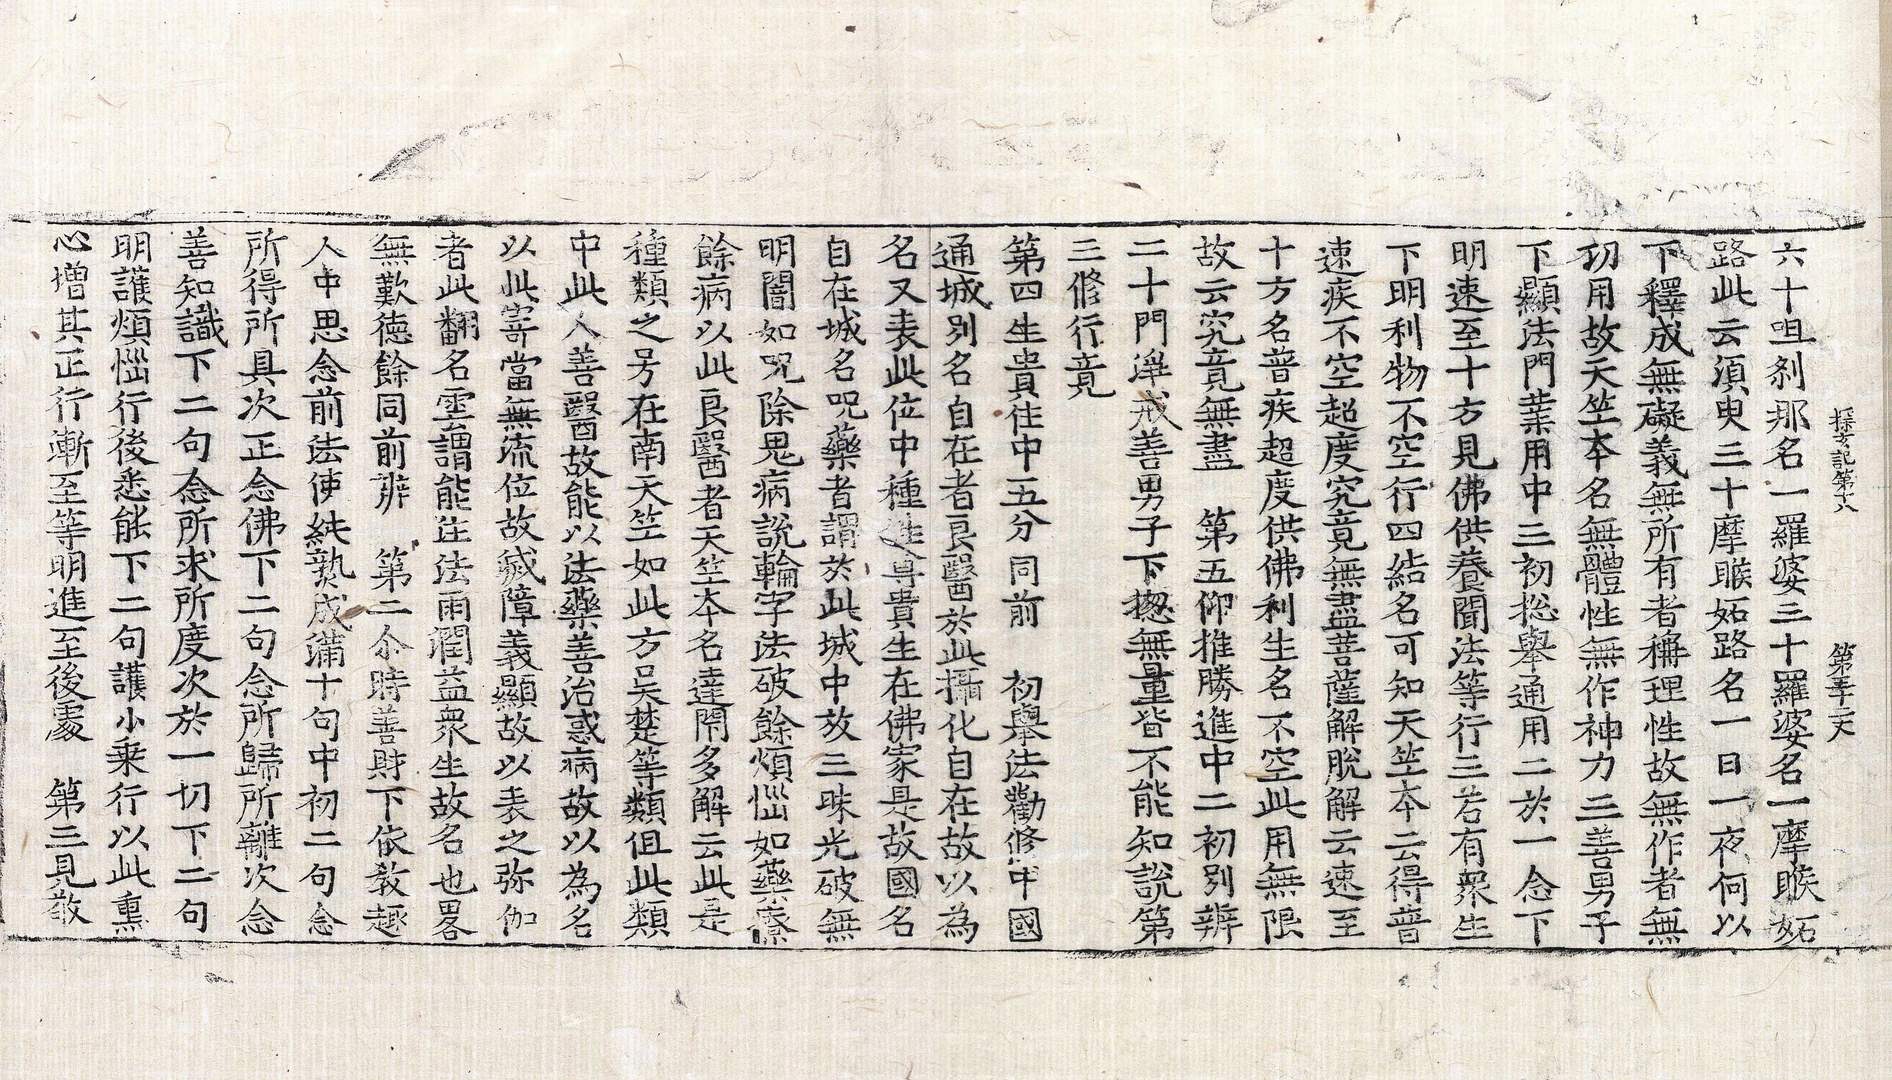 探玄記第十八 第三十二丈
六十呾剎那名一羅婆三十羅婆名一摩睺妬
路此云須臾三十摩睺妬路名一日一夜何以
下釋成無礙義無所有者稱理性故無作者無
功用故天竺本名無體性無作神力三善男子
下顯法門業用中三初揔舉通用二於一念下
明速至十方見佛供養聞法等行三若有衆生
下明利物不空行四結名可知天竺本云得普
速疾不空超度究竟無盡菩薩解脫解云速至
十方名普疾超度供佛利生名不空此用無限
故云究竟無盡 第五仰推勝進中二初別辨
二十門淨戒善男子下揔無量皆不能知說第
三修行竟
第四生貴住中五分同前 初舉法勸修中國
通城別名自在者良醫於此攝化自在故以為
名又表此位中種性尊貴生在佛家是故國名
自在城名呪藥者謂於此城中放三昧光破無
明闇如呪除鬼病說輪字法破餘煩惱如藥療
餘病以此良醫者天竺本名達閇多解云此是
種類之号在南天竺如此方吴楚等類但此類
中此人善醫故能以法藥善治惑病故以為名
以此寄當無流位故滅障義顯故以表之弥伽
者此翻名雲謂能注法雨潤益衆生故名也畧
無歎德餘同前辨 第二尒時善財下依教趣
人中思念前法使純熟成滿十句中初二句念
所得所具次正念佛下二句念所歸所離次念
善知識下二句念所求所度次於一切下二句
明護煩惱行後悉能下二句護小乗行以此熏
心增其正行漸至等明進至後處 第三見敬